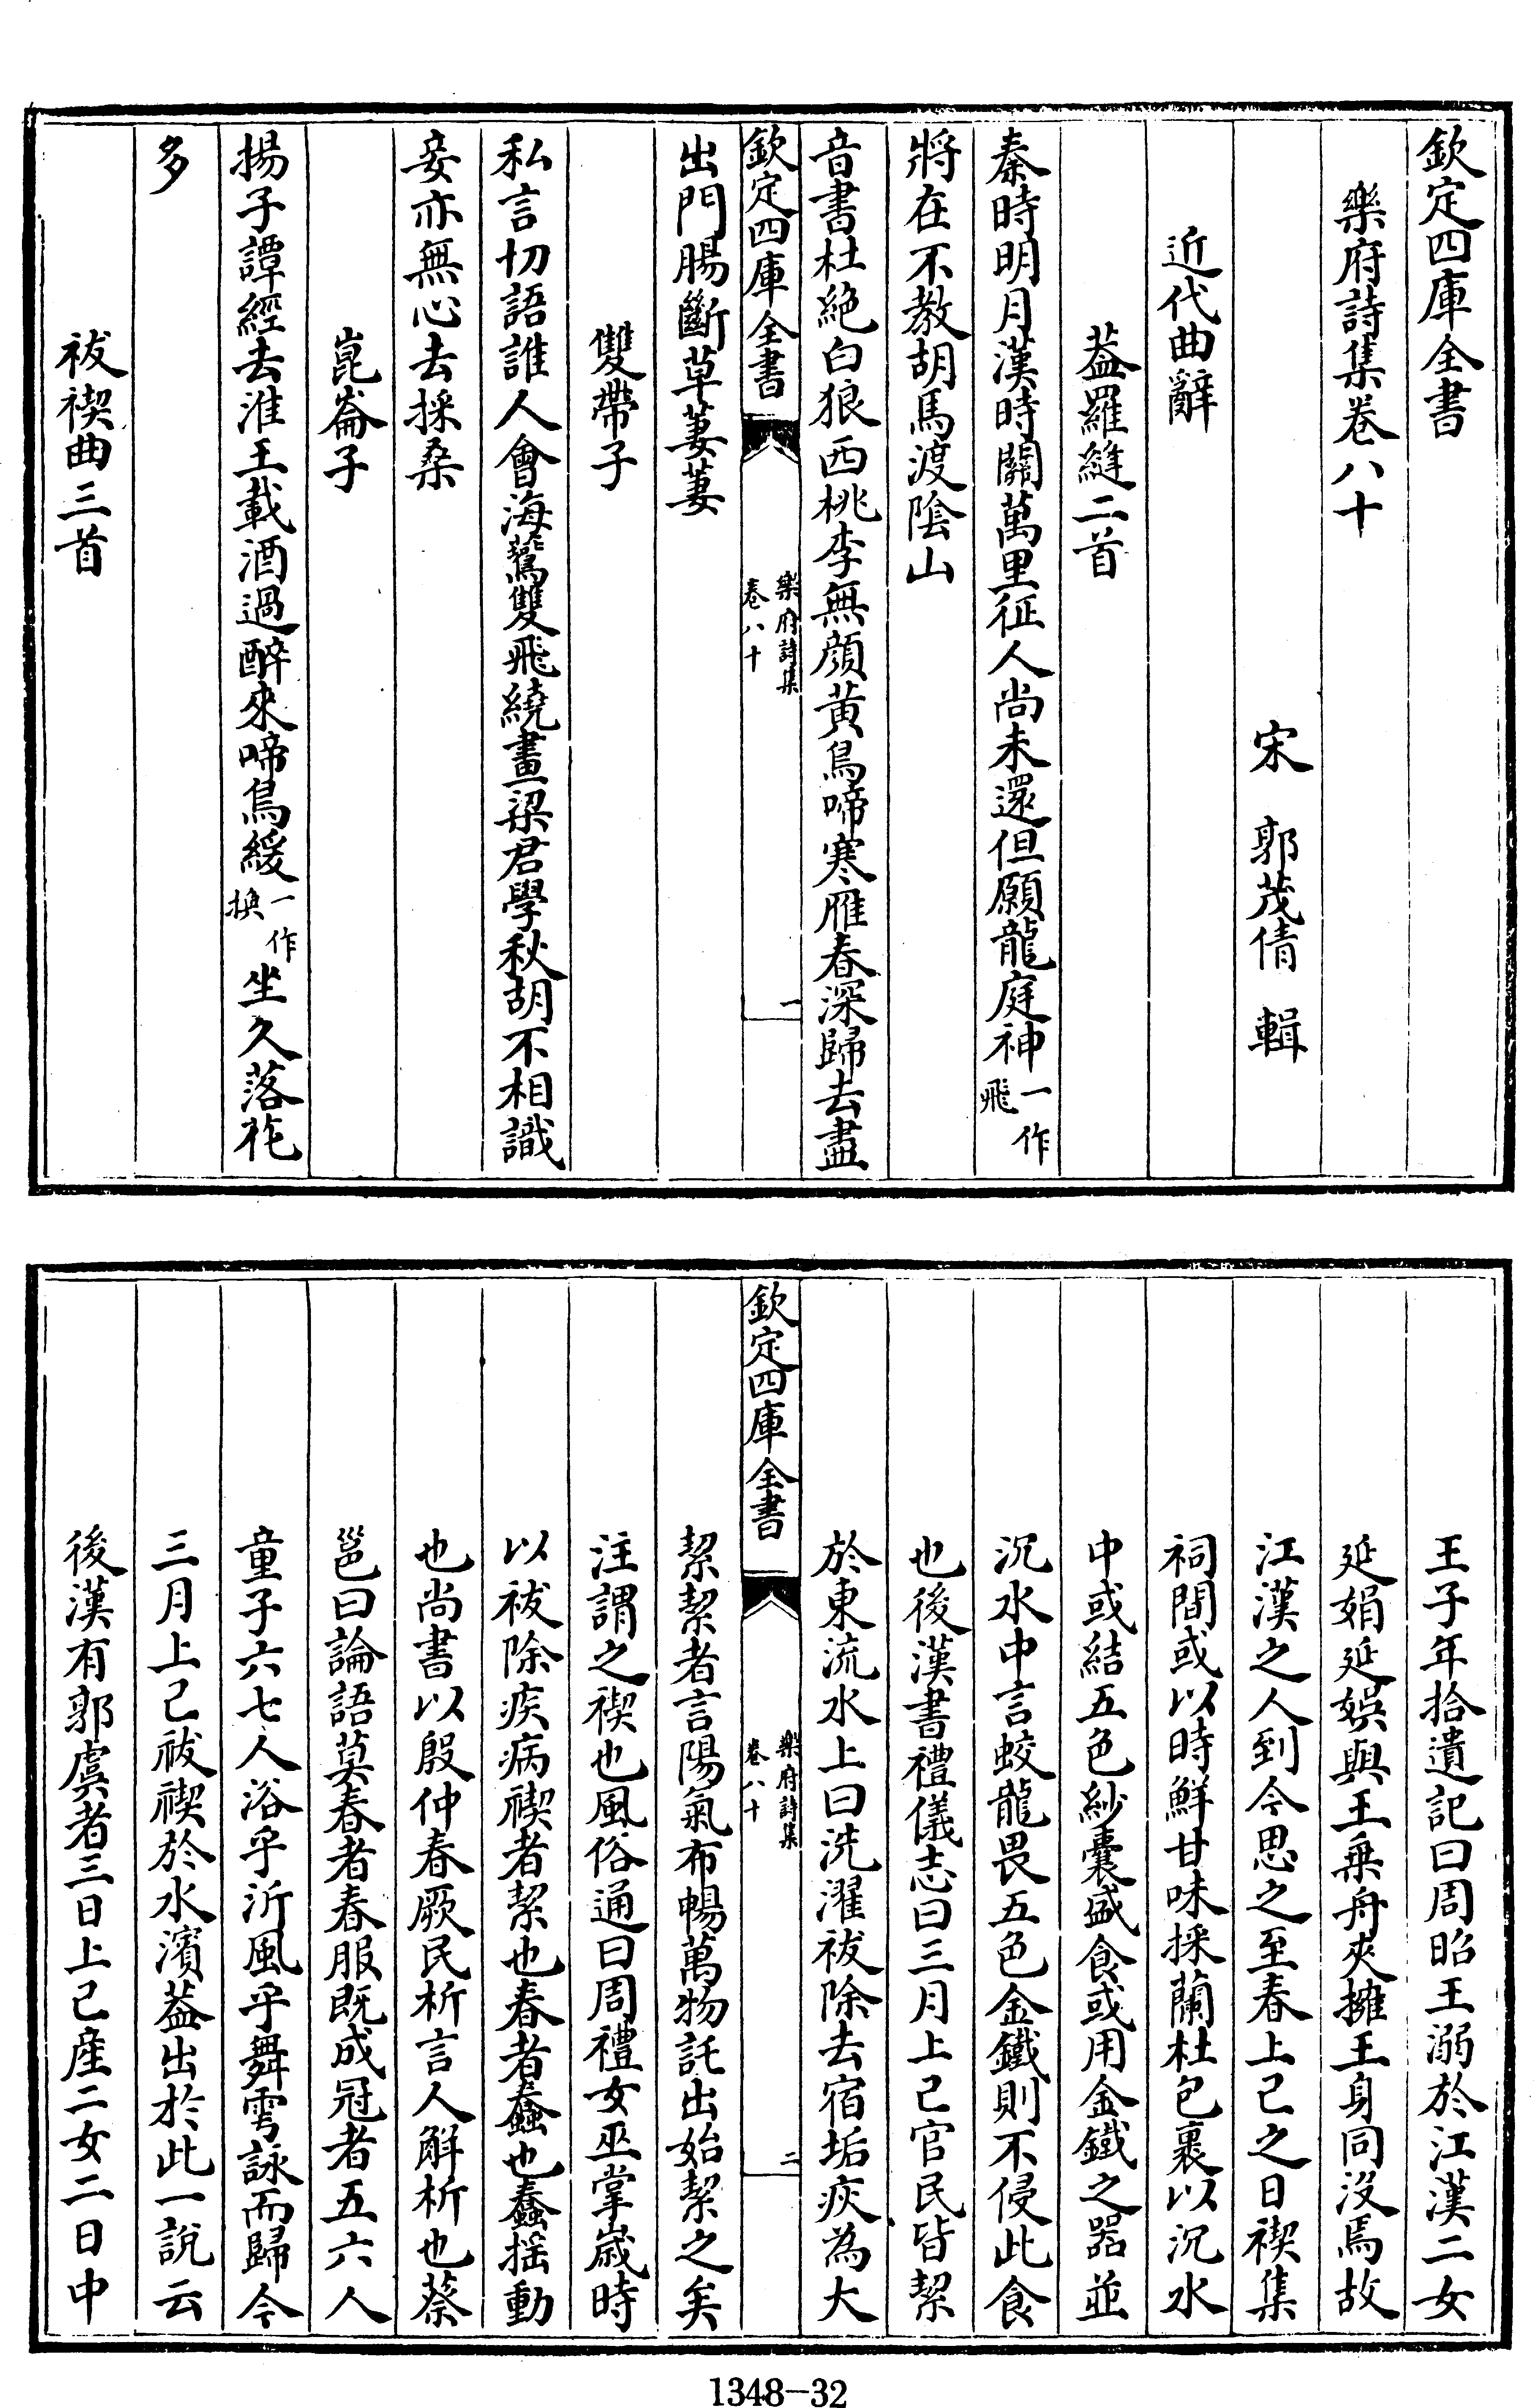 欽定四庫全書
樂府詩集卷八十
宋　郭茂倩　輯
近代曲辭
葢羅縫二首
秦時明月漢時關萬里征人尚未還但願龍庭神一作飛
將在不教胡馬渡陰山
音書杜絶白狼西桃李無顔黃鳥啼寒雁春深歸去盡
欽定四庫全書
樂府詩集
卷八十
一
出門腸斷草萋萋
雙帶子
私言切語誰人會海鷰雙飛繞畫梁君學秋胡不相識
妾亦無心去採桑
崑崙子
揚子譚經去淮王載酒過醉來啼鳥緩一作換坐久落花
多
祓禊曲三首
王子年拾遺記曰周昭王溺於江漢二女
延娟延娛與王乗舟夾擁王身同沒焉故
江漢之人到今思之至春上巳之日禊集
祠間或以時鮮甘味採蘭杜包裹以沉水
中或結五色紗囊盛食或用金鐵之器並
沉水中言蛟龍畏五色金鐵則不侵此食
也後漢書禮儀志曰三月上巳官民皆絜
於東流水上曰洗濯祓除去宿垢疢為大
欽定四庫全書
樂府詩集
卷八十
二
絜絜者言陽氣布暢萬物託出始絜之矣
注謂之禊也風俗通曰周禮女巫掌嵗時
以祓除疾病禊者絜也春者蠢也蠢揺動
也尚書以殷仲春厥民析言人解析也蔡
邕曰論語莫春者春服既成冠者五六人
童子六七人浴乎沂風乎舞雩詠而歸今
三月上巳祓禊於水濱葢出於此一說云
後漢有郭虞者三日上巳産二女二日中
1348-32